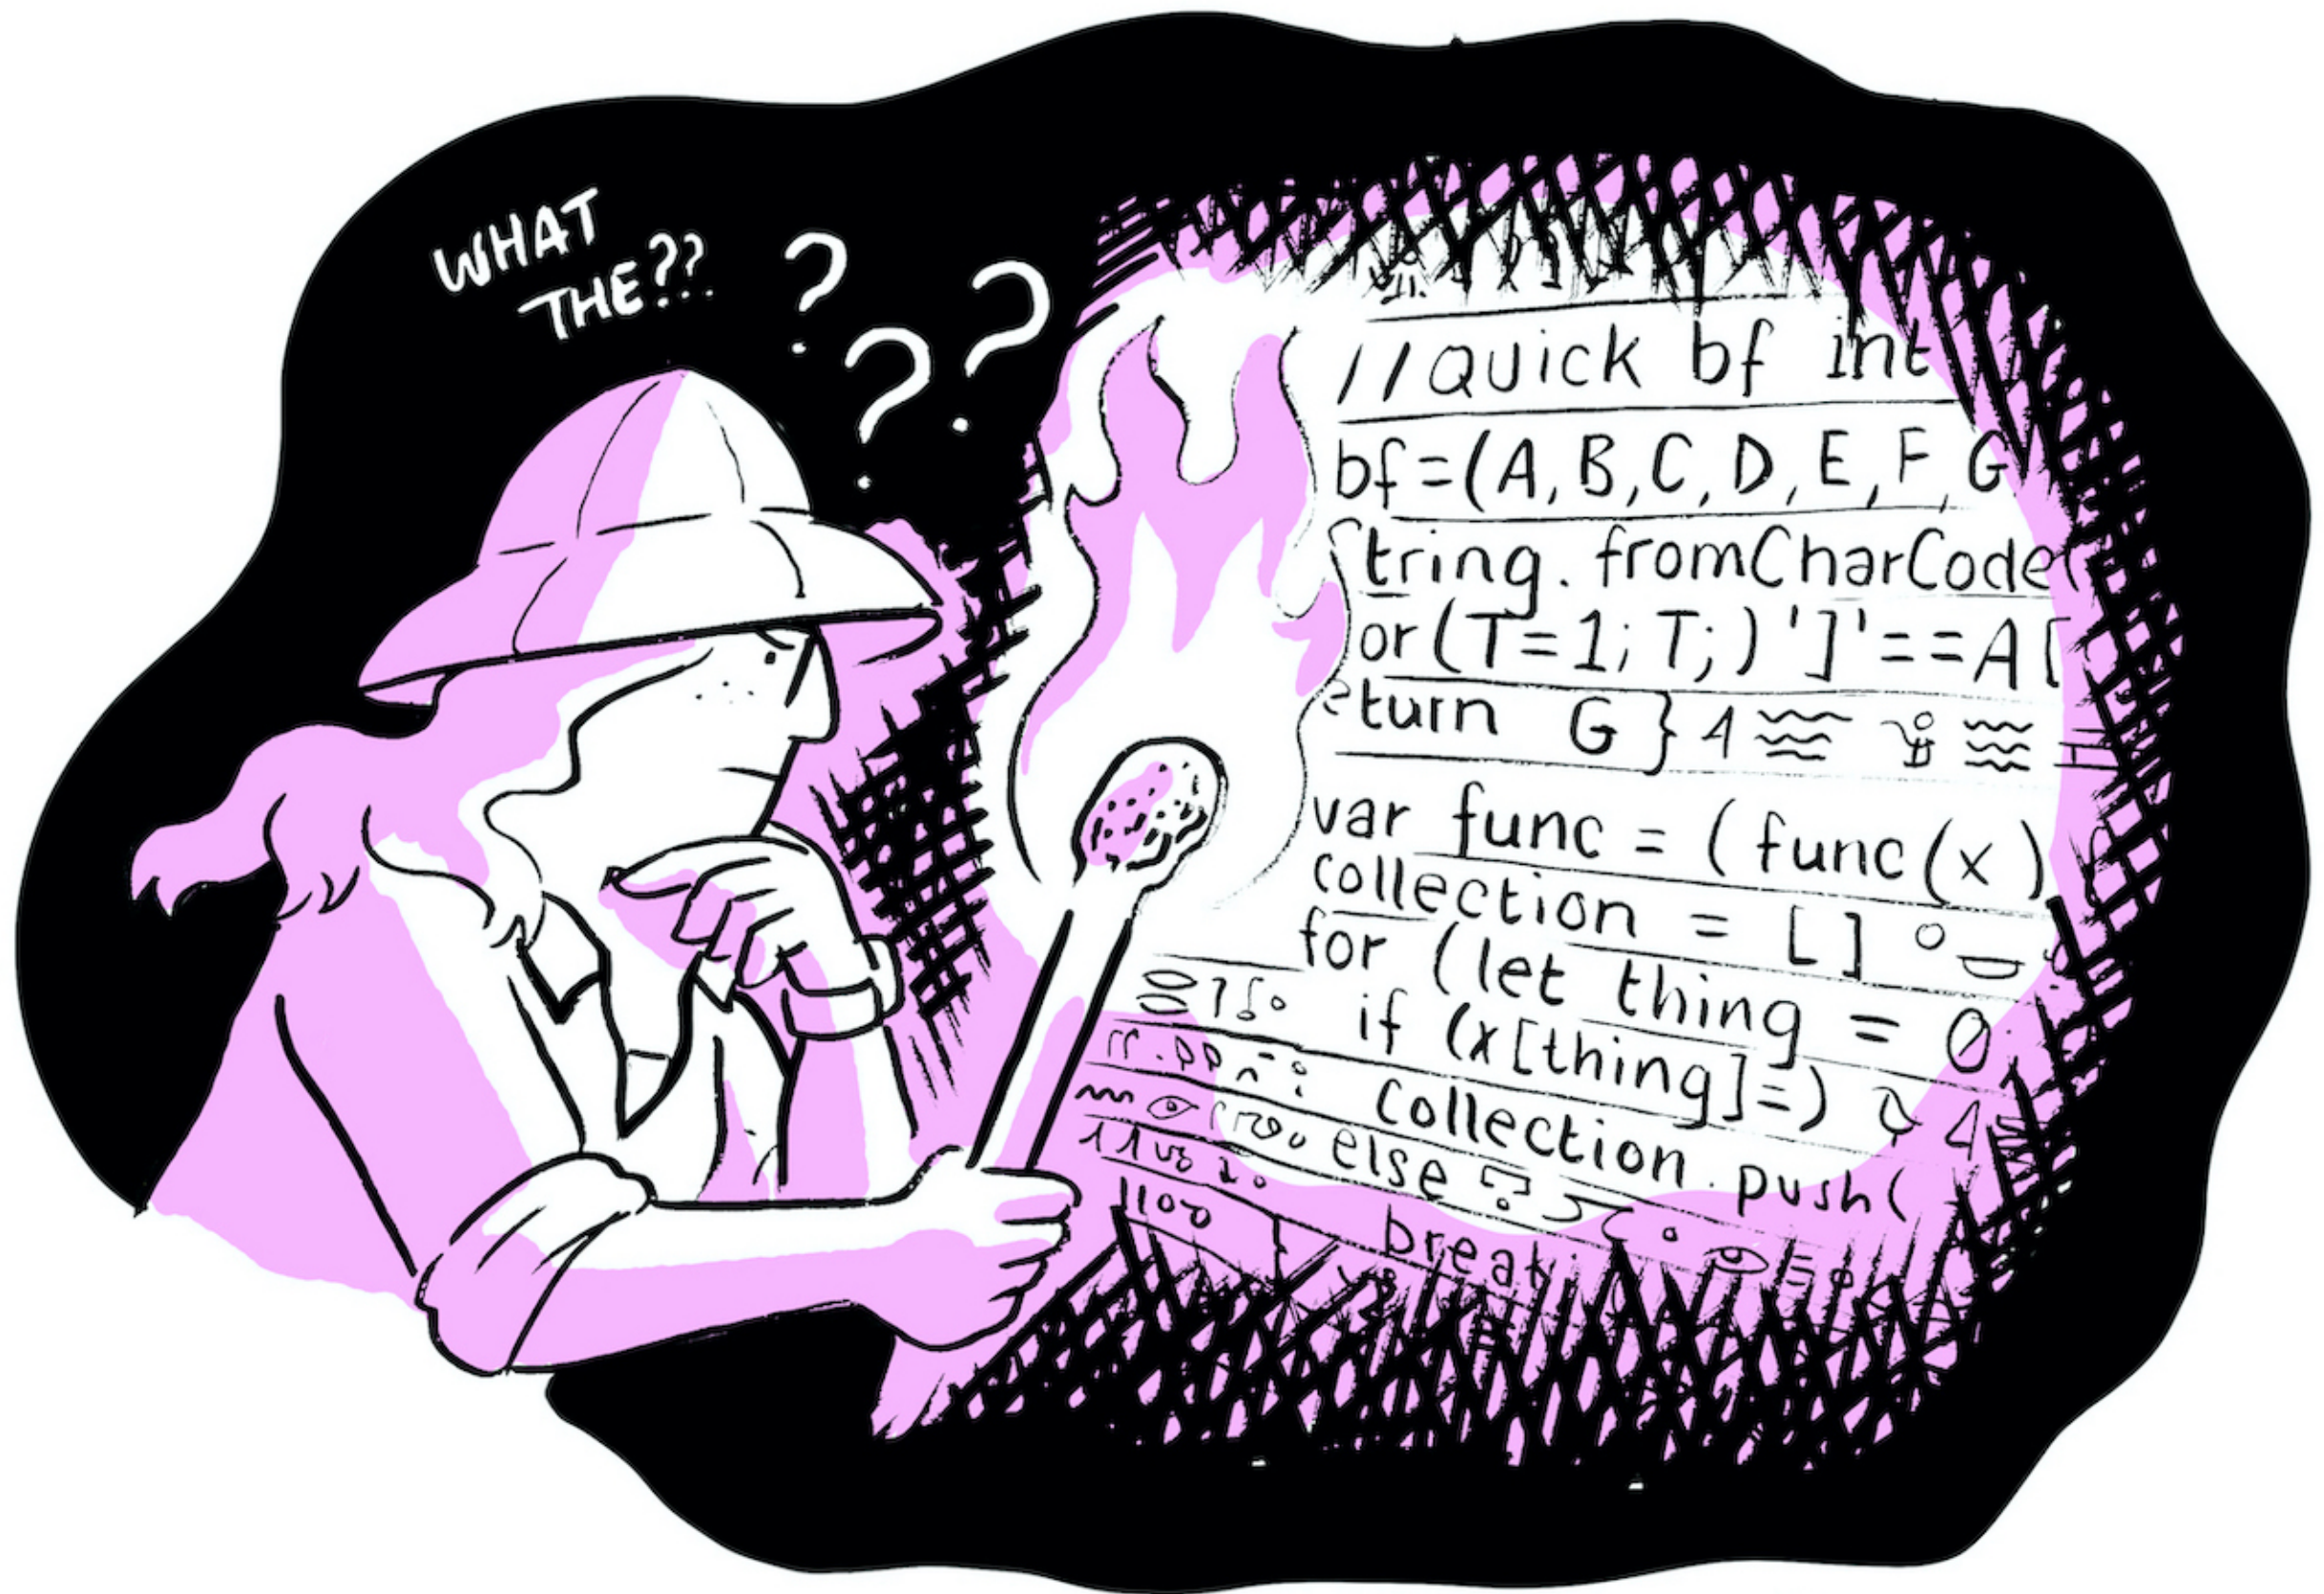 WHAT
THE??
? ? ?
//QUICK bf int
bf=(A,B,C,D,E,F,G
String.fromCharCode(
or(T=1;T;)']'==A[
eturn G}
var func = (func(x)
collection = []
for (let thing = 0
if (x[thing]=)
collection.push(
else
1100
break